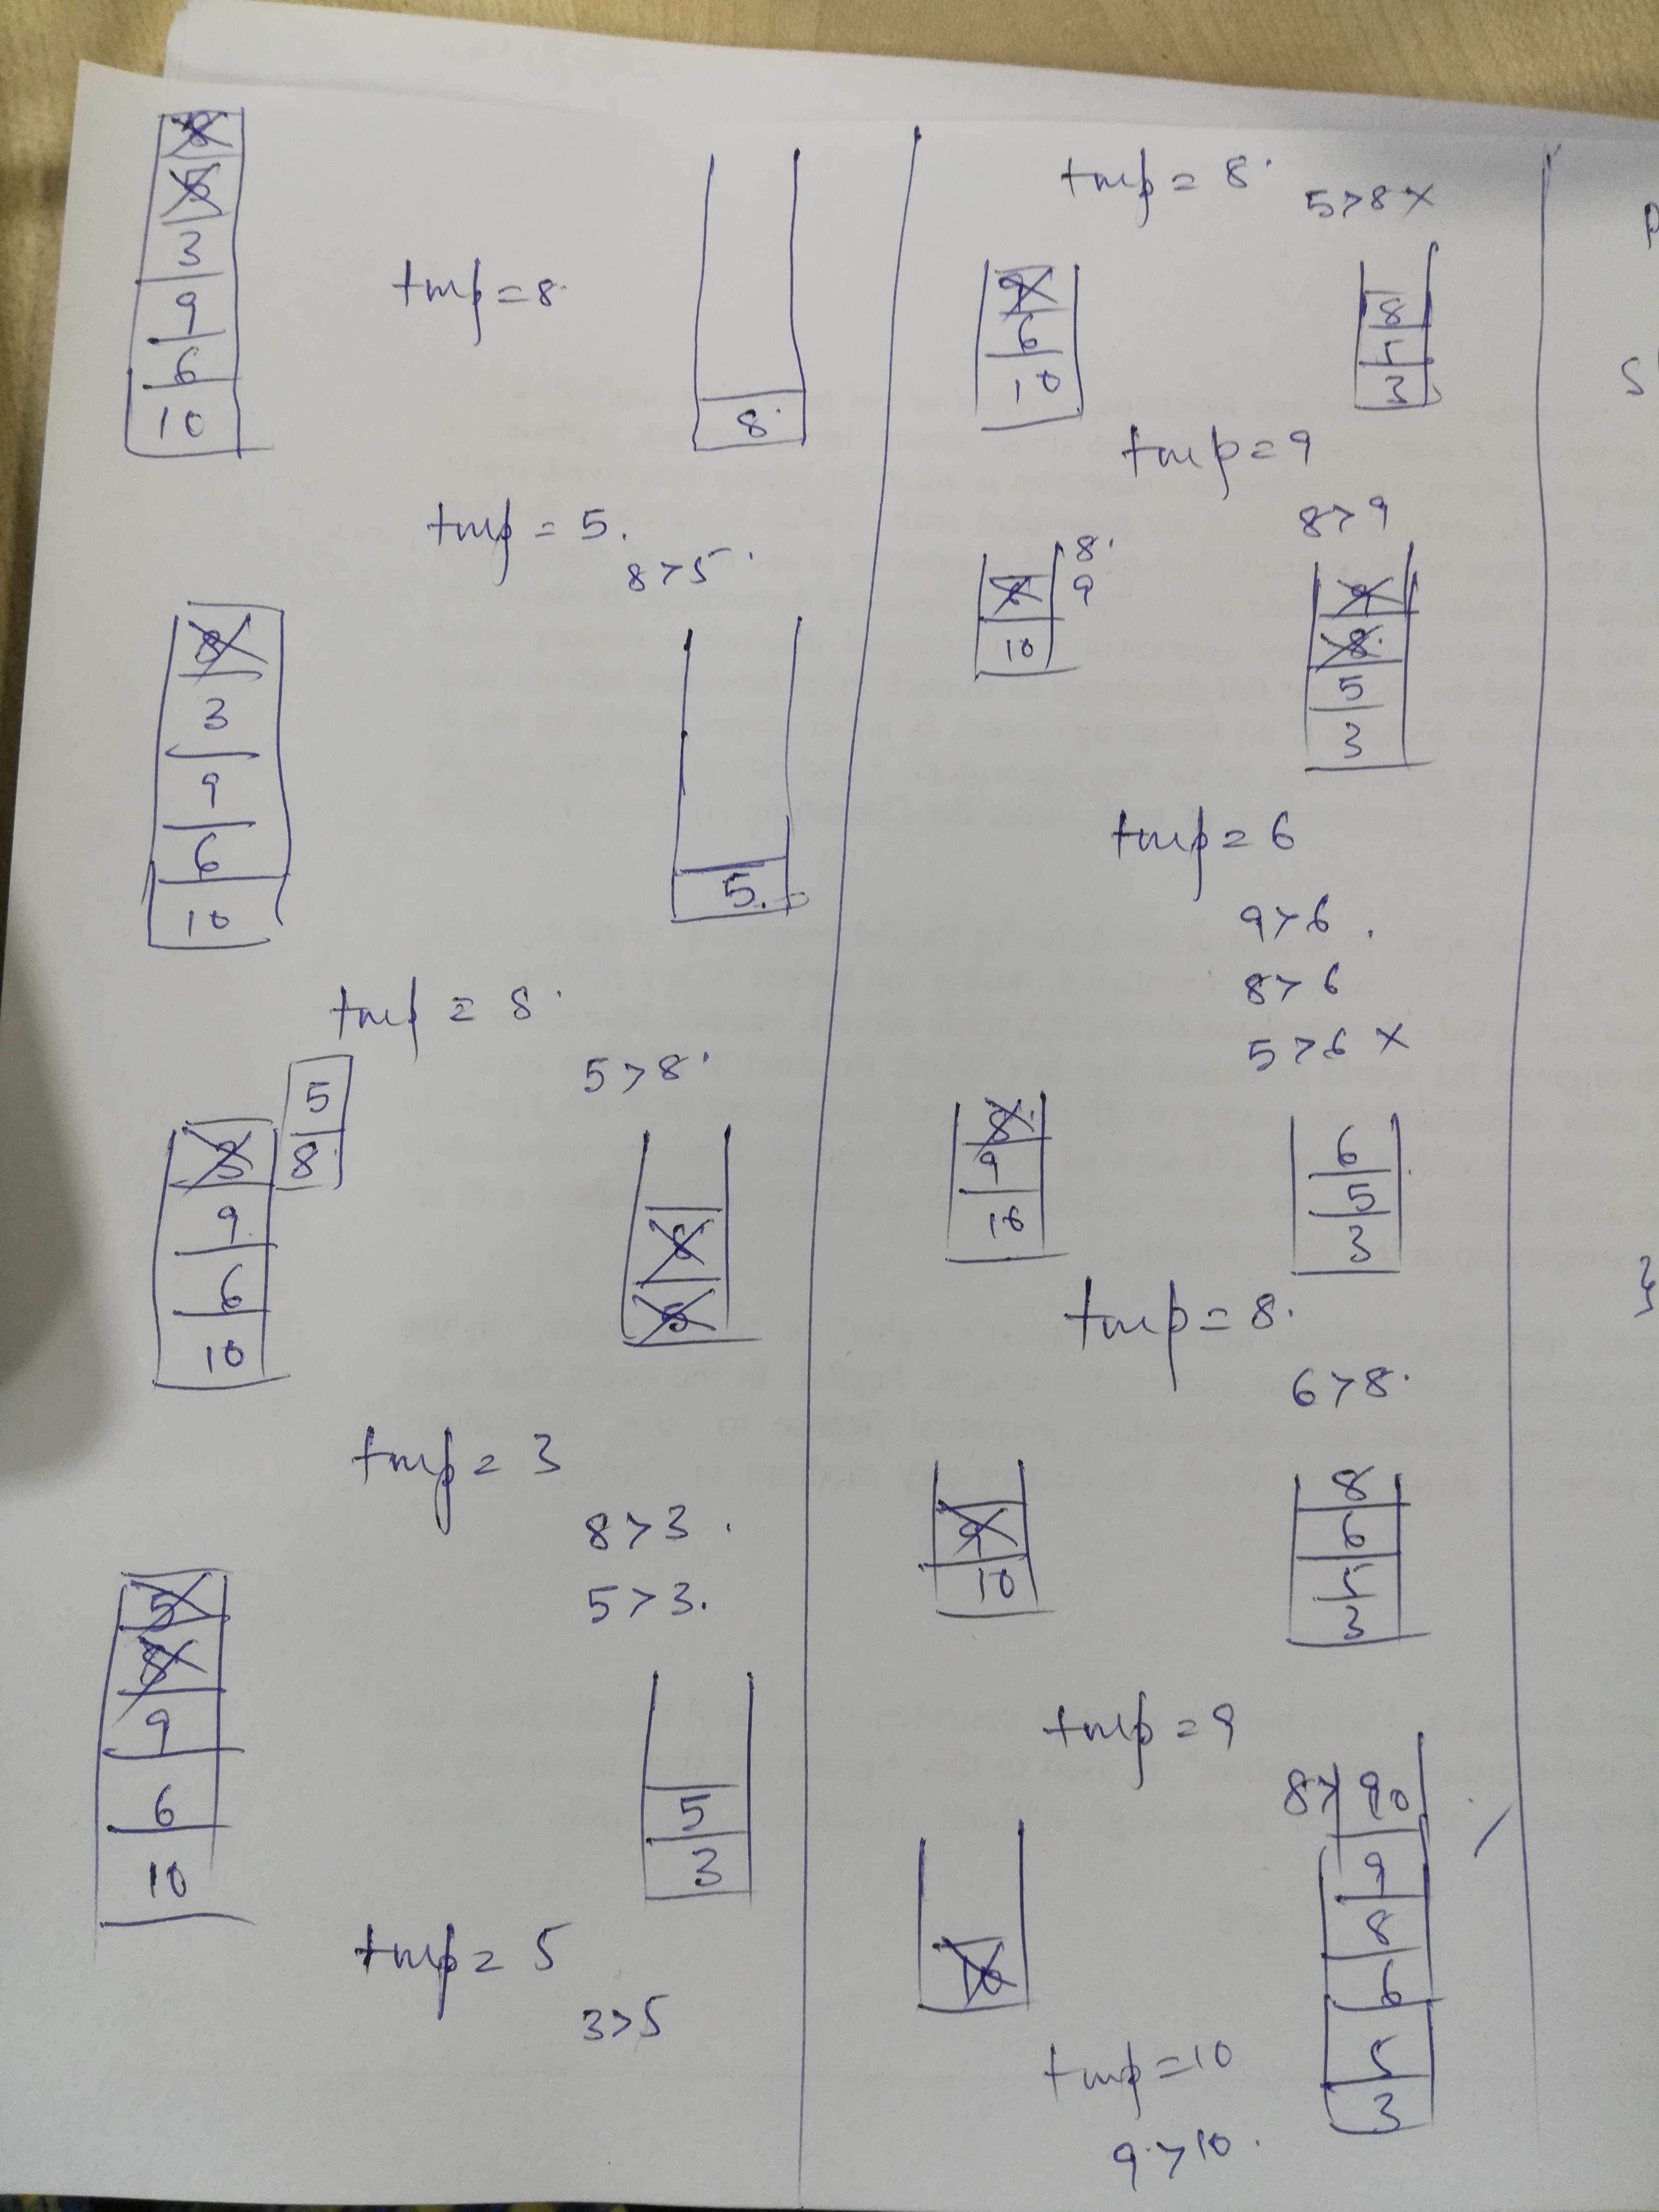 3
9
6
10
tmp = 8.
8.
tmp = 5.
8 > 5.
8
3
9
6
10
5.
tmp = 8.
5 > 8.
5
8
3
9
6
10
8
5
tmp = 3
8 > 3.
5 > 3.
5
8
9
6
10
5
3
tmp = 5
3 > 5
tmp = 8.
5 > 8 ×
9
6
10
8
5
3
tmp = 9
8 > 9
8.
9
6
10
9
8.
5
3
tmp = 6
9 > 6.
8 > 6
5 > 6 ×
8.
9
10
6
5
3
tmp = 8.
6 > 8.
9
10
8
6
5
3
tmp = 9
8 > 9
10
10
9
8
6
5
3
tmp = 10
9 > 10.
P
S
}